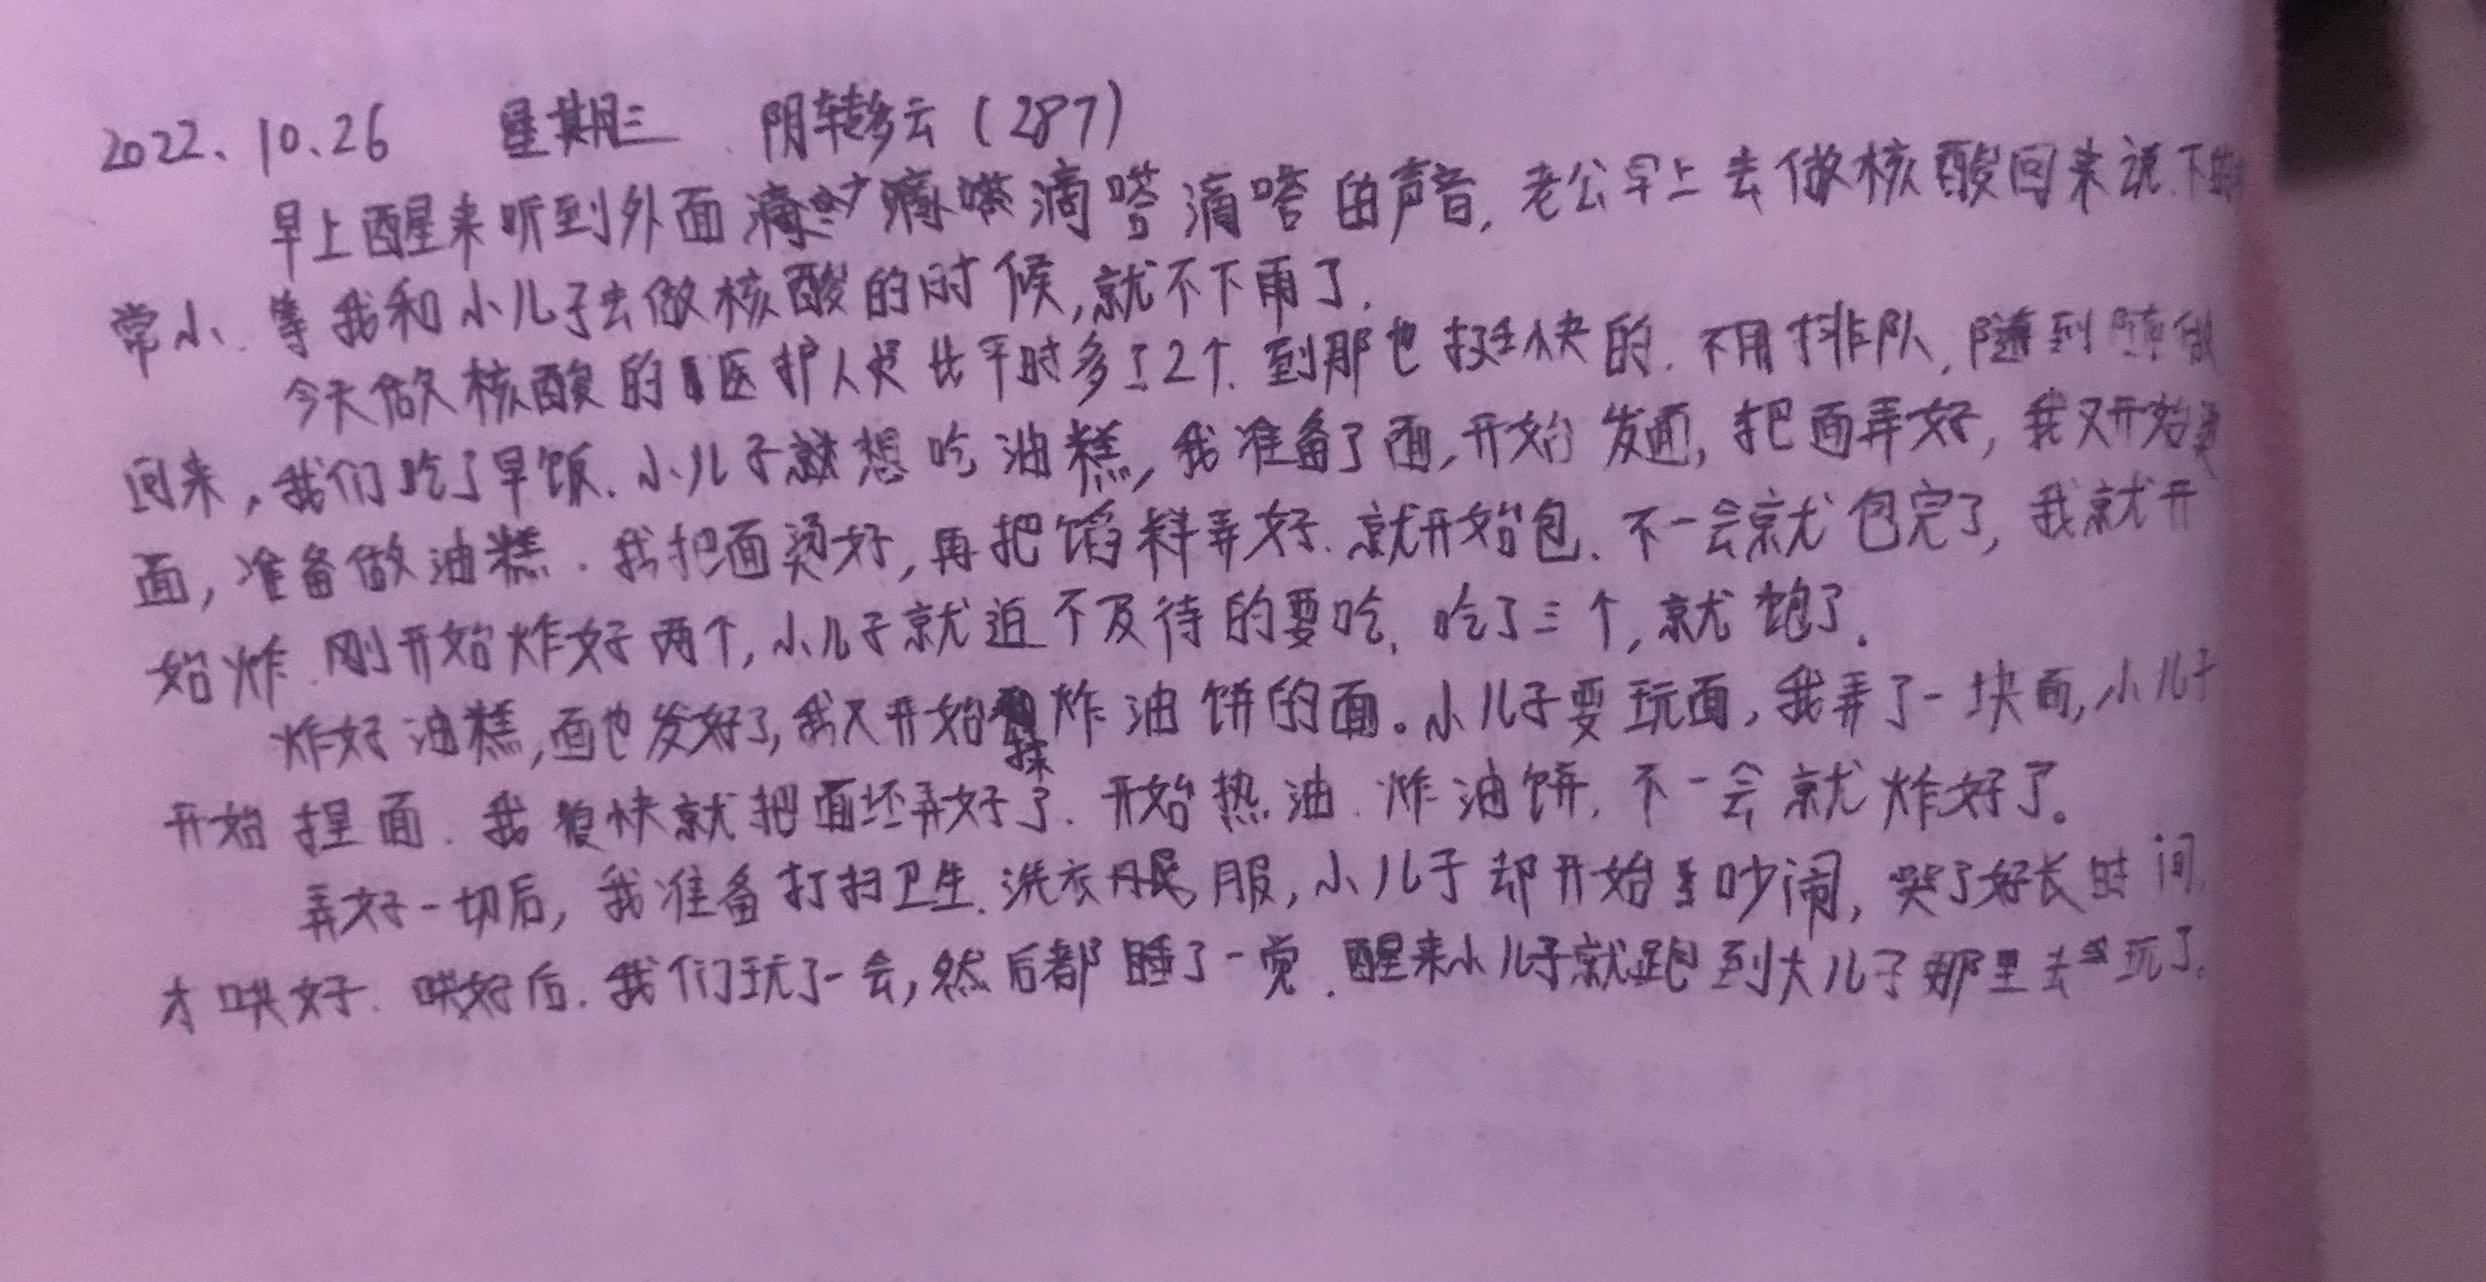 2022、10.26 星期三 阴转多云(287)
早上醒来听到外面滴嗒滴嗒滴嗒的声音,老公早上去做核酸回来说下的
常小、等我和小儿子去做核酸的时候,就不下雨了.
今天做核酸的医护人员比平时多了2个.到那也挺快的.不用排队,随到随做
回来,我们吃了早饭.小儿子就想吃油糕,我准备了面,开始发面,把面弄好,我又开始烫
面,准备做油糕.我把面烫好,再把馅料弄好.就开始包.不一会就包完了,我就开
始炸.刚开始炸好两个,小儿子就迫不及待的要吃.吃了三个,就饱了.
炸好油糕,面也发好了,我又开始揉炸油饼的面。小儿子要玩面,我弄了一块面,小儿子
开始捏面.我很快就把面坯弄好了.开始热油.炸油饼.不一会就炸好了。
弄好一切后,我准备打扫卫生.洗衣服,小儿子却开始吵闹,哭了好长时间,
才哄好.哄好后.我们玩了一会,然后都睡了一觉.醒来小儿子就跑到大儿子那里去玩了.